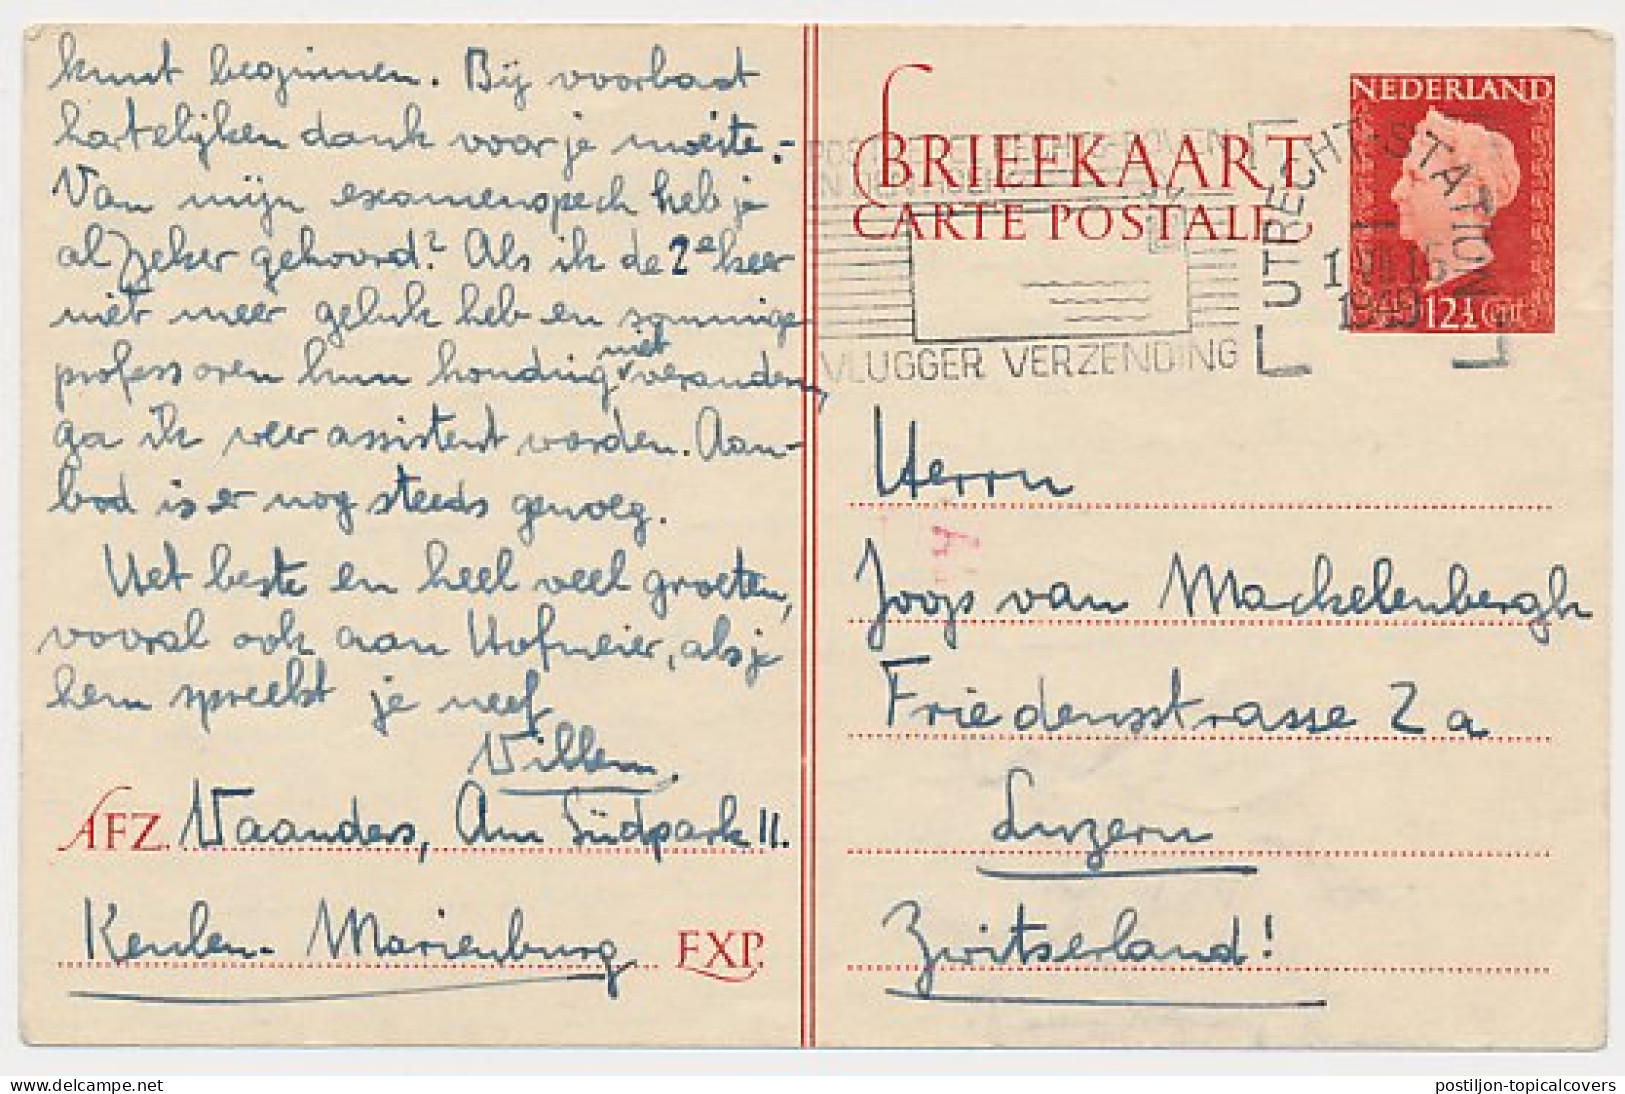 kunt beginnen. Bij voorbaat
hartelijken dank voor je moeite.-
Van mijn examenspech heb je
al zeker gehoord? Als ik de 2e keer
niet meer geluk heb en sommige
professoren hun houding niet veranderen,
ga ik weer assistent worden. Aan-
bod is er nog steeds genoeg.
Het beste en heel veel groeten,
vooral ook aan Hofmeier, als je
hem spreekt je neef
Willem.
AFZ. Vaanders, Am Südpark 11.
Keulen- Marienburg EXP.
BRIEFKAART
CARTE POSTALE
NEDERLAND
12½ Cent
UTRECHT-STATION
1 VII 15
1949
VLUGGER VERZENDING
Herrn
Joop van Mackelenbergh
Friedensstrasse 2a
Luzern
Zwitserland!
postiljon-topicalcovers